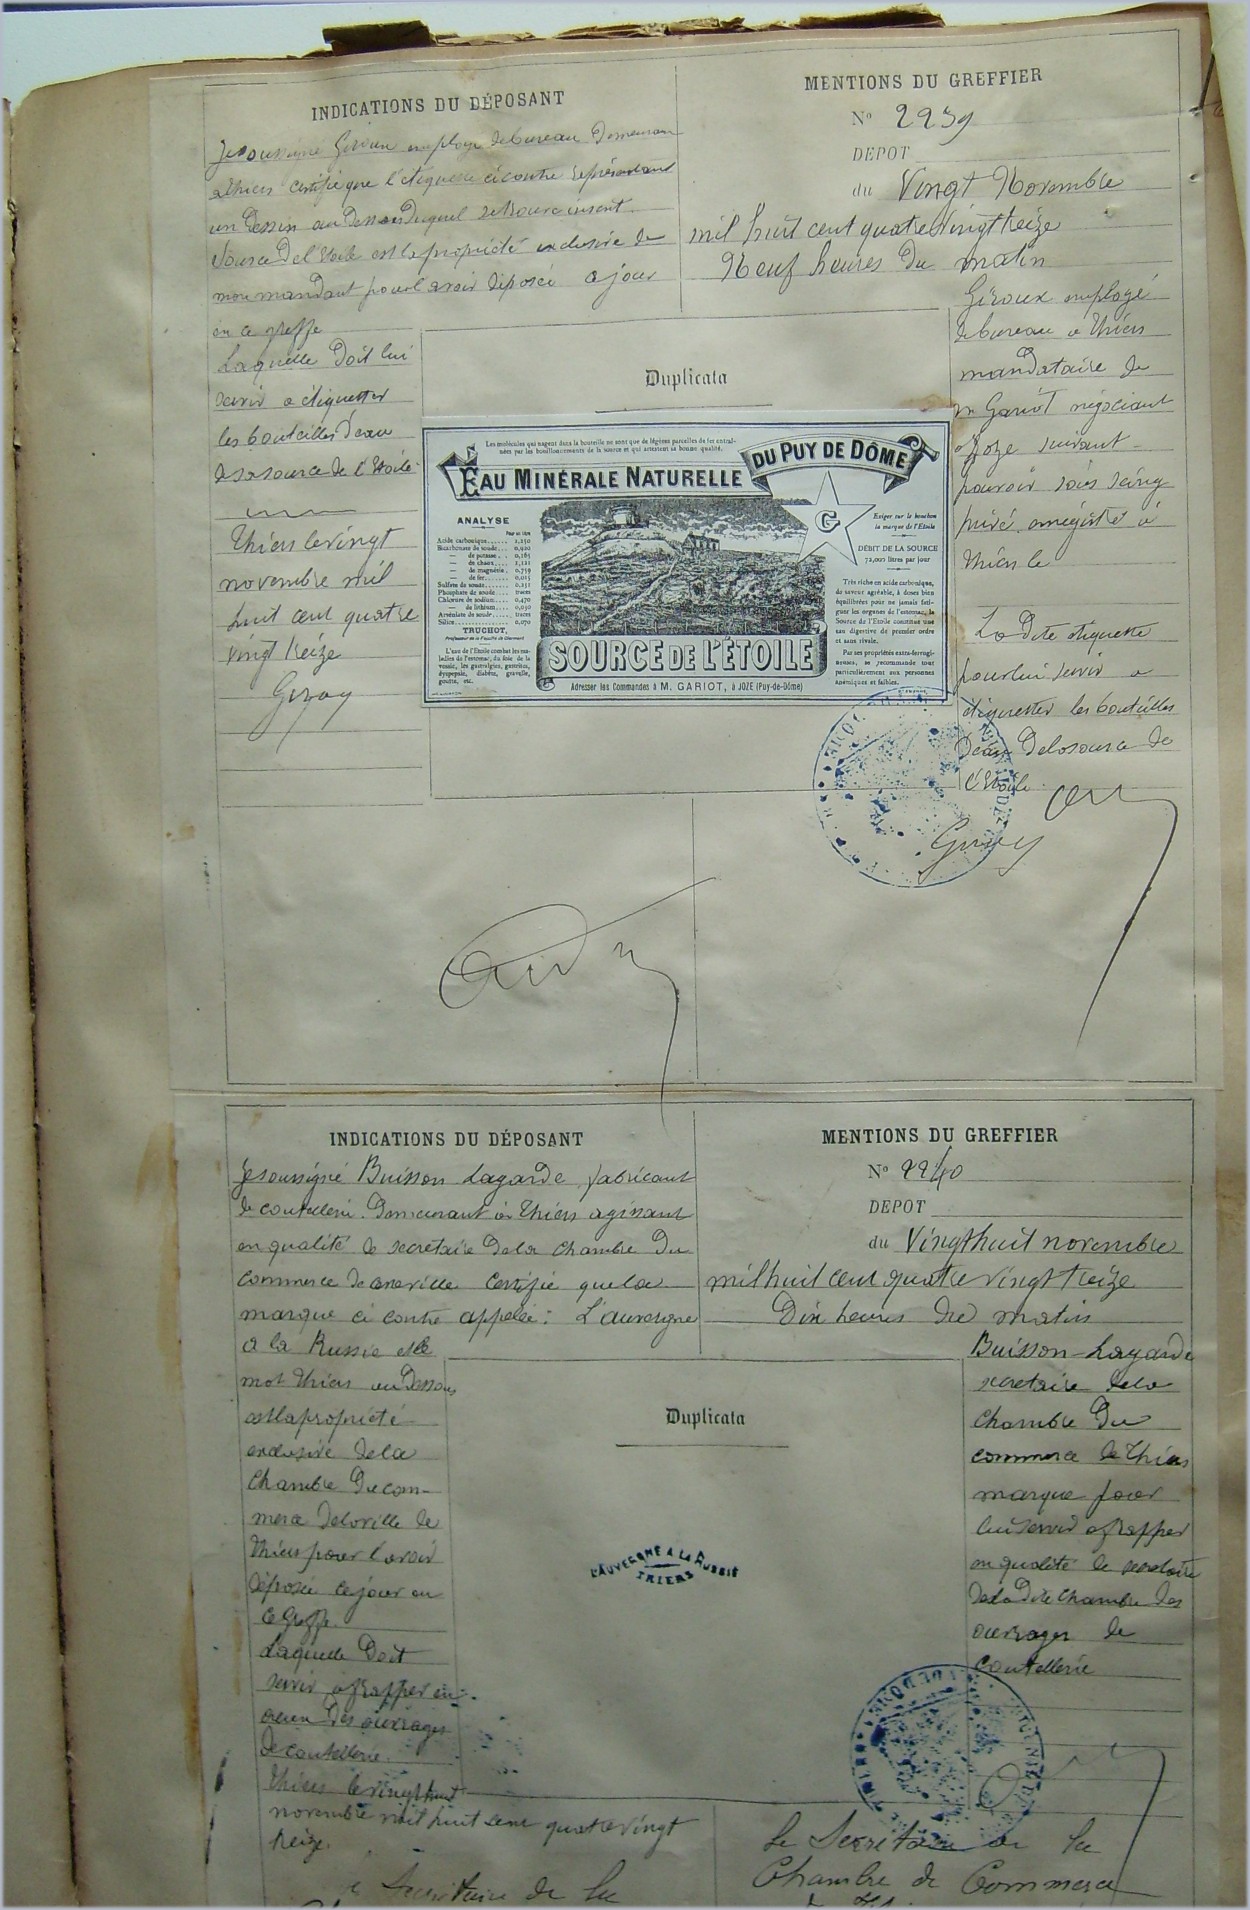 INDICATIONS DU DÉPOSANT
Je soussigné Giroux employé de bureau demeurant
a Thiers certifie que l'étiquette ci contre représentant
un dessin au dessous duquel se trouve inscrit
Source de l'Etoile est la propriété exclusive de
mon mandant pour l'avoir déposée ce jour
en ce greffe
Laquelle doit lui
servir a étiquetter
les bouteilles d'eau
de sa source de l'Etoile
Thiers le vingt
novembre mil
huit cent quatre
vingt treize
MENTIONS DU GREFFIER
N° 2239
DEPOT
du Vingt Novembre
mil huit cent quatre vingt treize
Neuf heures du matin
Giroux employé
de bureau a Thiers
mandataire de
m Gariot négociant
a Joze suivant
pouvoir sous seing
privé enregistré a
Thiers le
La dite étiquette
pour lui servir a
étiquetter les bouteilles
d'eau de la source de
l'Etoile
Duplicata
Les molécules qui nagent dans la bouteille ne sont que de légères parcelles de fer entraî-
nées par les bouillonnements de la source et qui attestent sa bonne qualité.
EAU MINÉRALE NATURELLE
DU PUY DE DÔME
G
ANALYSE
Pour un litre
Acide carbonique...... 1,250
Bicarbonate de soude.... 0,920
— de potasse.. 0,185
— de chaux... 1,121
— de magnésie. 0,759
— de fer...... 0,015
Sulfate de soude....... 0,251
Phosphate de soude.... traces
Chlorure de sodium... 0,470
— de lithium.... 0,030
Arséniate de soude.... traces
Silice............... 0,070
TRUCHOT,
Professeur à la Faculté de Clermont
L'eau de l'Étoile combat les ma-
ladies de l'estomac, du foie, de la
vessie, les gastralgies, gastrites,
dyspepsie, diabète, gravelle,
goutte, etc.
Exiger sur le bouchon
la marque de l'Étoile
DÉBIT DE LA SOURCE
72,000 litres par jour
Très riche en acide carbonique,
de saveur agréable, à doses bien
équilibrées pour ne jamais fati-
guer les organes de l'estomac, la
Source de l'Étoile constitue une
eau digestive de premier ordre
et sans rivale.
Par ses propriétés extra-ferrugi-
neuses, se recommande tout
particulièrement aux personnes
anémiques et faibles.
SOURCE DE L'ÉTOILE
Adresser les Commandes à M. GARIOT, à JOZE (Puy-de-Dôme)
INDICATIONS DU DÉPOSANT
Je soussigné Buisson Lagarde fabricant
de coutellerie demeurant a Thiers agissant
en qualité de secrétaire de la chambre du
commerce de cette ville certifie que la
marque ci contre appelée: L'auvergne
a la Russie et le
mot Thiers au dessous
est la propriété
exclusive de la
chambre du com-
merce de la ville de
Thiers pour l'avoir
déposée ce jour en
ce Greffe.
Laquelle doit
servir a frapper en
creux des ouvrages
de coutellerie.
Thiers le vingt huit
novembre mil huit cent quatre vingt
treize.
Secrétaire de la
MENTIONS DU GREFFIER
N° 2240
DEPOT
du Vingt huit novembre
mil huit cent quatre vingt treize
Dix heures du matin
Buisson-Lagarde
secretaire de la
chambre du
commerce de Thiers
marque pour
lui servir a frapper
en qualité de secretaire
de la dite chambre des
ouvrages de
coutellerie
Duplicata
L'AUVERGNE A LA RUSSIE
THIERS
Le Secrétaire de la
Chambre de Commerce